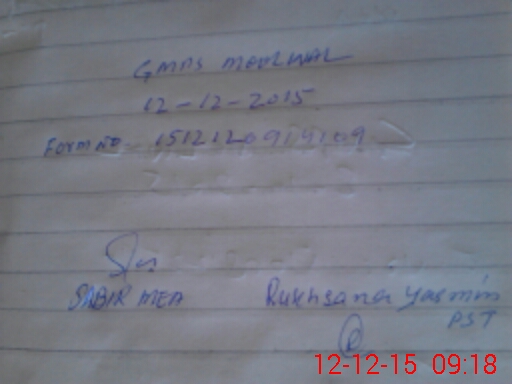 GMPS
12-12-2015
Form No. 1512120919109
SABIR MEA
Rukhsana Yasmin
PST
12-12-15 09:18